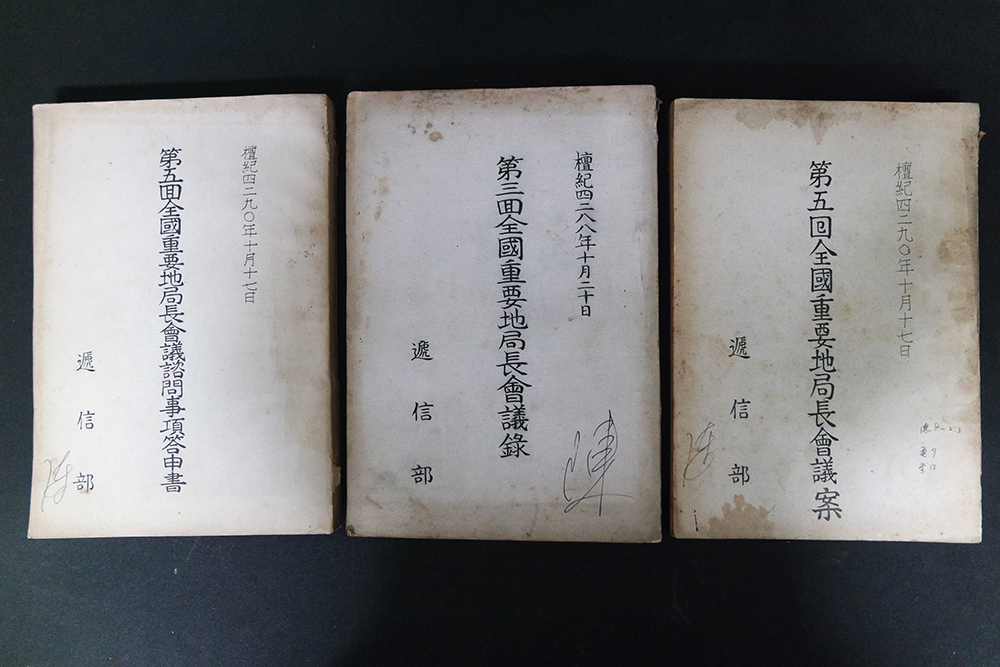 檀紀四二九〇年十月十七日
第五回全國重要地局長會議諮問事項答申書
遞信部
檀紀四二八八年十月二十日
第三回全國重要地局長會議錄
遞信部
檀紀四二九〇年十月十七日
第五回全國重要地局長會議案
遞信部